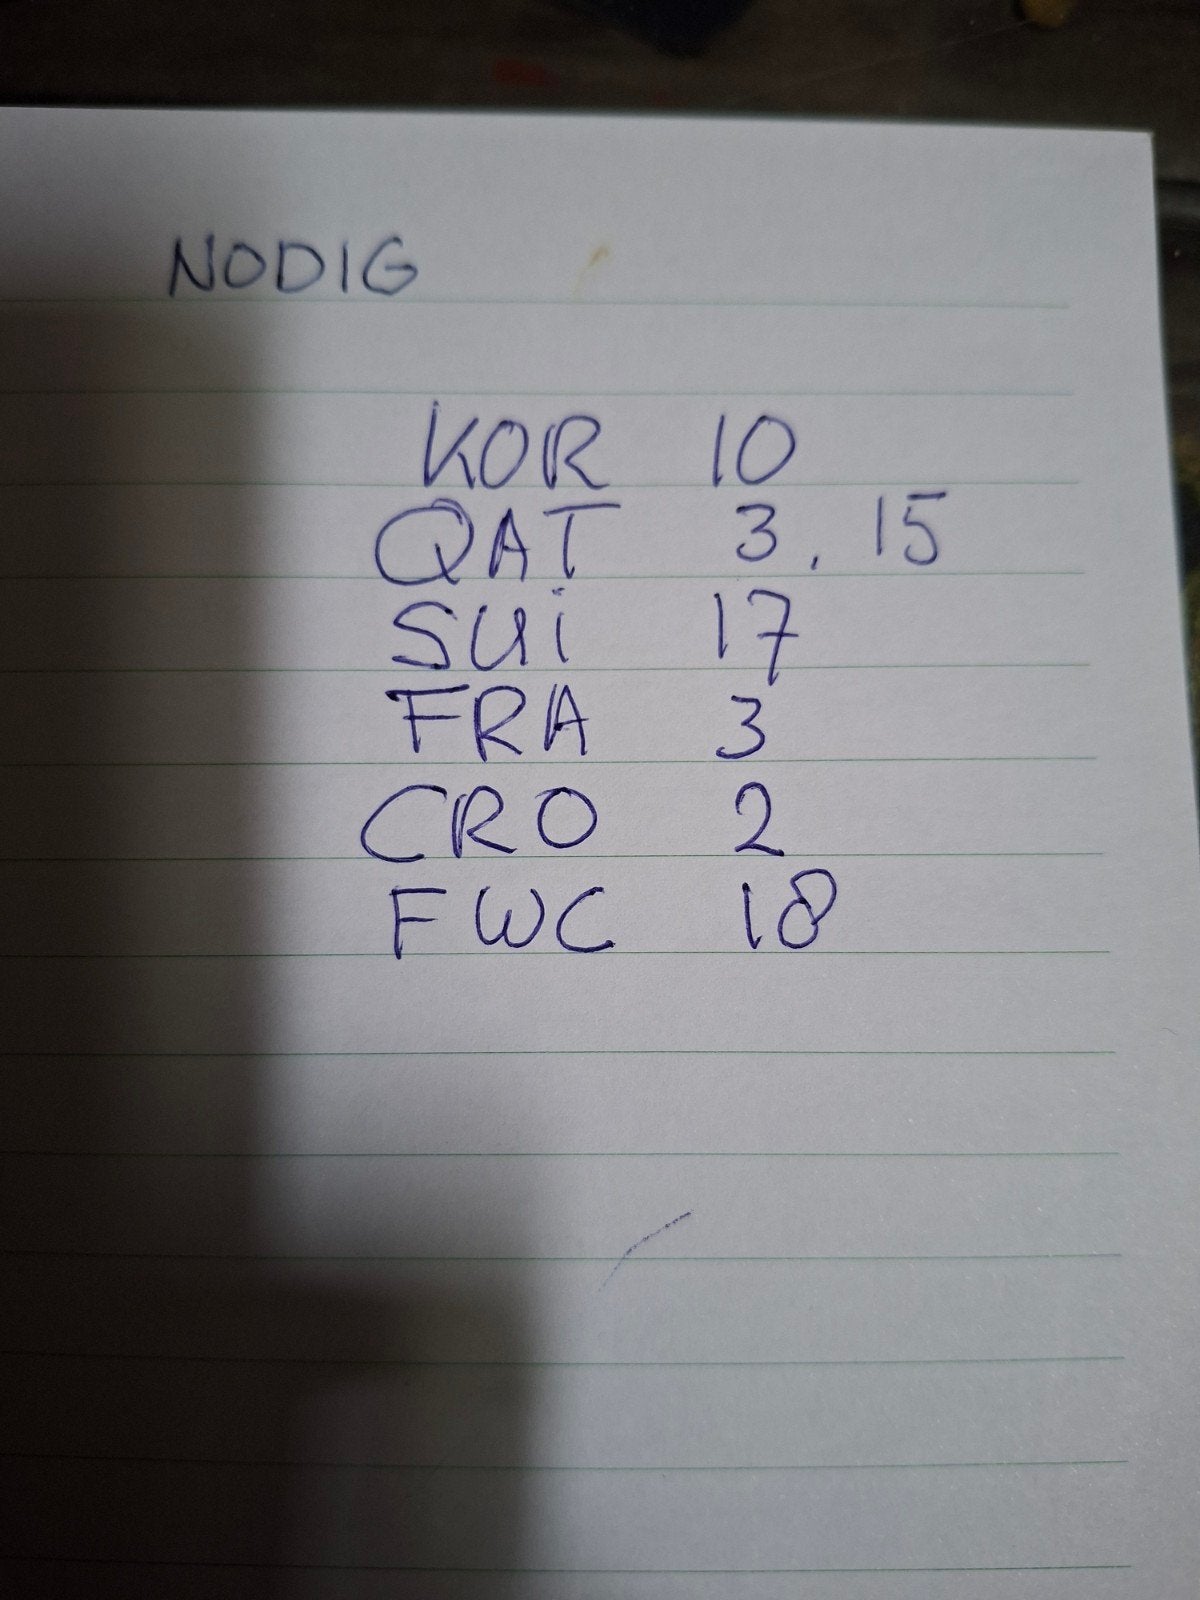 NODIG
KOR 10
QAT 3, 15
SUi 17
FRA 3
CRO 2
FWC 18